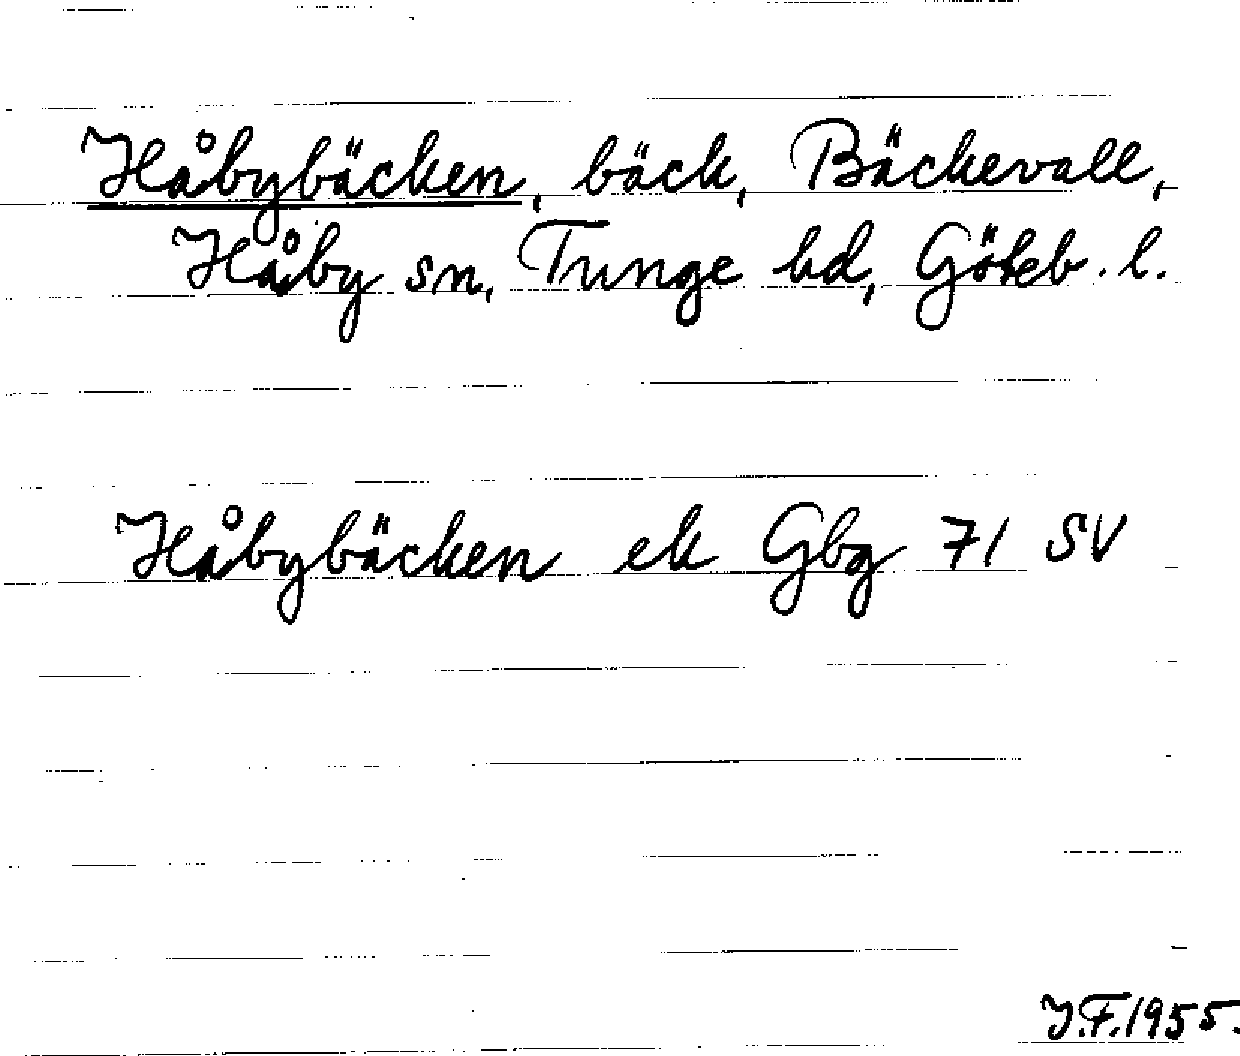 Håbybäcken, bäck, Bäckevall,
Håby sn, Tunge hd, Göteb. l.
Håbybäcken ek Gbg 71 SV
J.F. 1955.